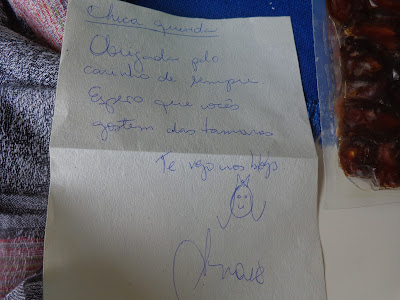 Chica querida
Obrigada pelo
carinho de sempre
Espero que vocês
gostem das tamaras
Te vejo nos blogs